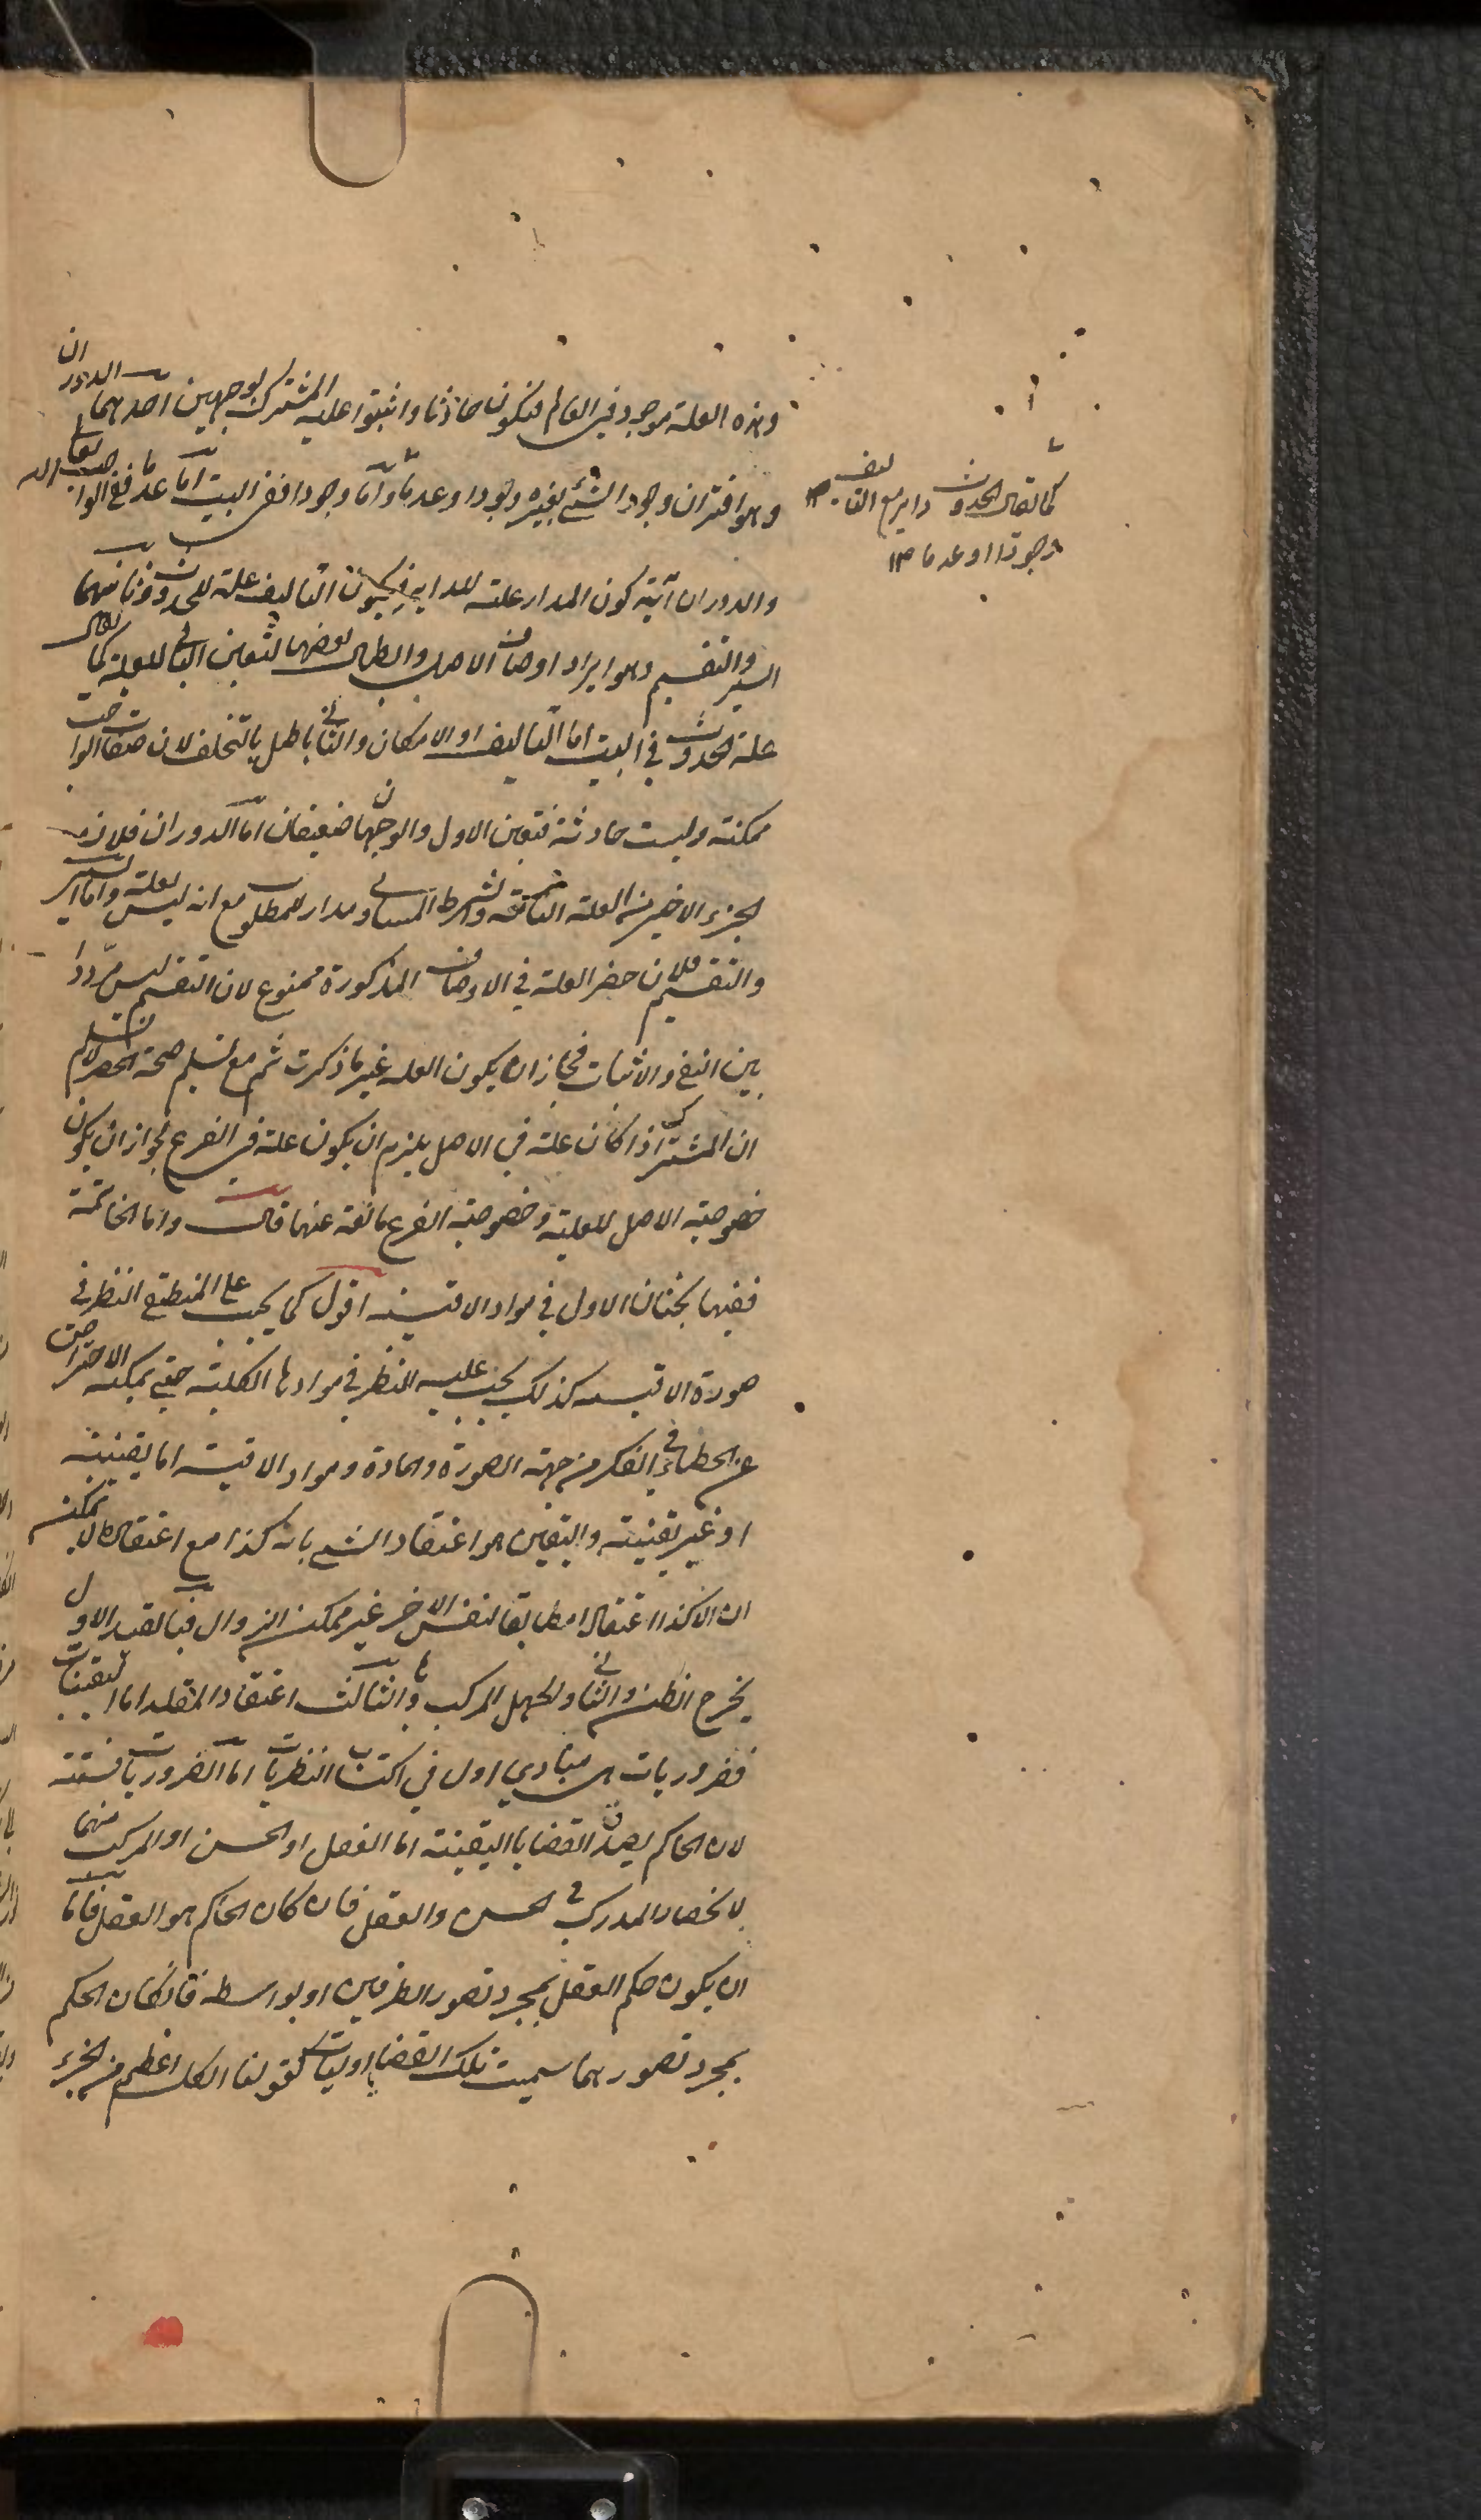 وهذه العلة موجود في العالم فيكون حادثا واثبتوا علية المشترك بوجهين احدهما الدوران
وهو اقتران وجود الشئ بغيره وجودا وعدما واما وجودا ففي البيت اما عدما ففي الواجب تعالى
والدوران آية كون المدار علة للداير فيكون التاليف علة للحدوث وثانيهما
السبر والتقسيم وهو ايراد اوصاف الاصل وابطال بعضها لتعين الباقي للعلية كما يقال
علة الحدوث في البيت اما التاليف او الامكان والثاني باطل بالتخلف لان صفات الواجب
ممكنة وليست حادثة فتعين الاول والوجهان ضعيفان اما الدوران فلان
الجزء الاخير من العلة التامة والشرط المساوي مدار للمطلوب مع انه ليس بعلة واما السبر
والتقسيم فلان حصر العلة في الاوصاف المذكورة ممنوع لان التقسيم ليس مرددا
بين النفي والاثبات فجاز ان يكون العلة غير ما ذكرت ثم مع تسليم صحة الحصر لا نسلم
ان المشترك اذا كان علة في الاصل يلزم ان يكون علة في الفرع لجواز ان يكون
خصوصية الاصل للعلية وخصوصية الفرع مانعة عنها قال واما الخاتمة
ففيها بحثان الاول في مواد الاقيسة اقول كما يجب على المنطقي النظر في
صورة الاقيسة كذلك يجب عليه النظر في موادها الكلية حتى يمكنه الاحتراز
عن الخطاء في الفكر من جهة الصورة والمادة ومواد الاقيسة اما يقينية
او غير يقينية واليقين هو اعتقاد الشئ بانه كذا مع اعتقاد انه لا يمكن
ان الا كذا اعتقادا مطابقا لنفس الامر غير ممكن الزوال فبالقيد الاول
يخرج الظن والثاني الجهل المركب وبالثالث اعتقاد المقلد اما اليقينيات
فضروريات هي مبادي اول في اكتساب النظريات اما الضروريات فستة
لان الحاكم بصدق القضايا اليقينة اما العقل او الحس او المركب منهما
لانحصار المدرك في الحس والعقل فان كان الحاكم هو العقل فاما
ان يكون حكم العقل بمجرد تصور الطرفين او بواسطة فان كان الحكم
بمجرد تصورهما سميت تلك القضايا اوليات كقولنا الكل اعظم من الجزء
كما يقال الحدوث داير مع التاليف ١٢
وجودا او عدما ١٢